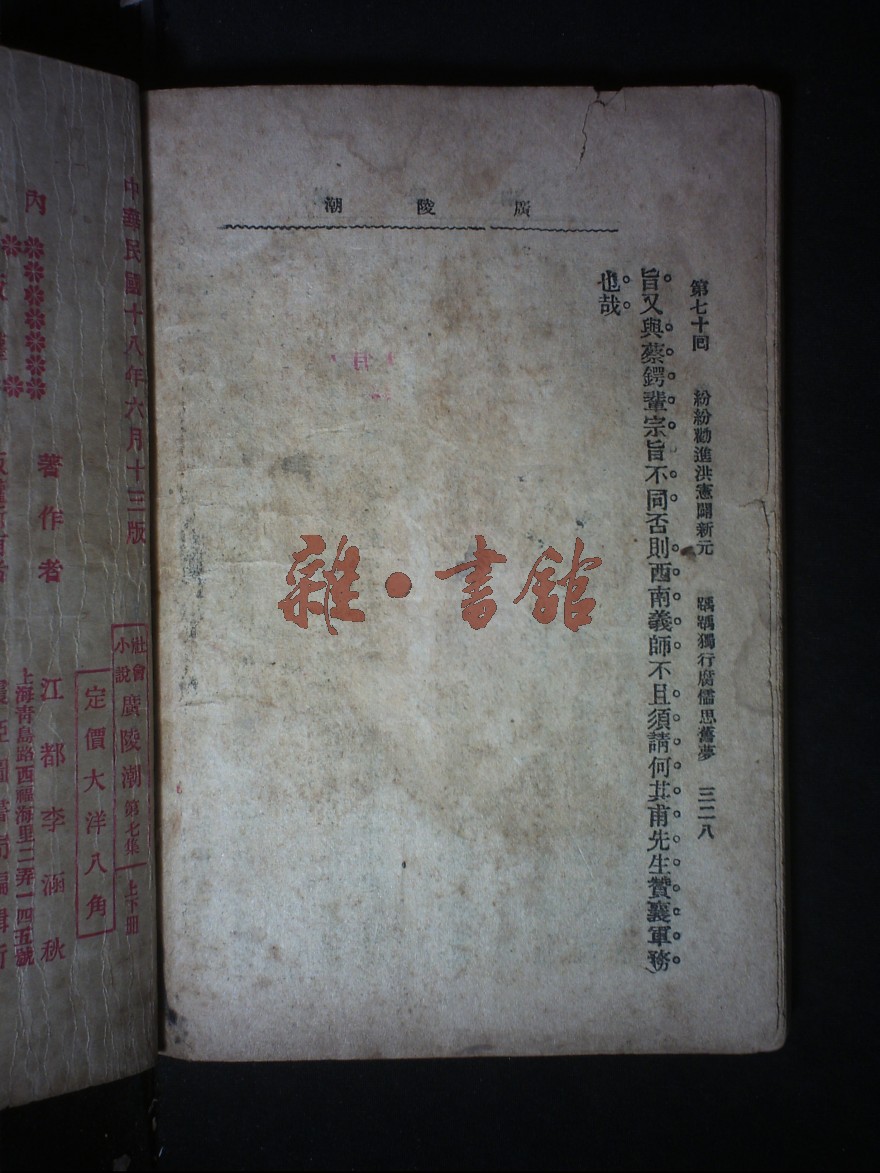 廣陵潮
第七十回 紛紛勸進洪憲闢新元 踽踽獨行腐儒思舊夢 三二八
旨又與蔡鍔輩宗旨不同否則西南義師不且須請何其甫先生贊襄軍務
也哉
雜·書館
中華民國十八年六月十三版
社會小說 廣陵潮 第七集 上下冊
定價大洋八角
著作者 江都李涵秋
上海青島路西福海里二弄一四五號
內